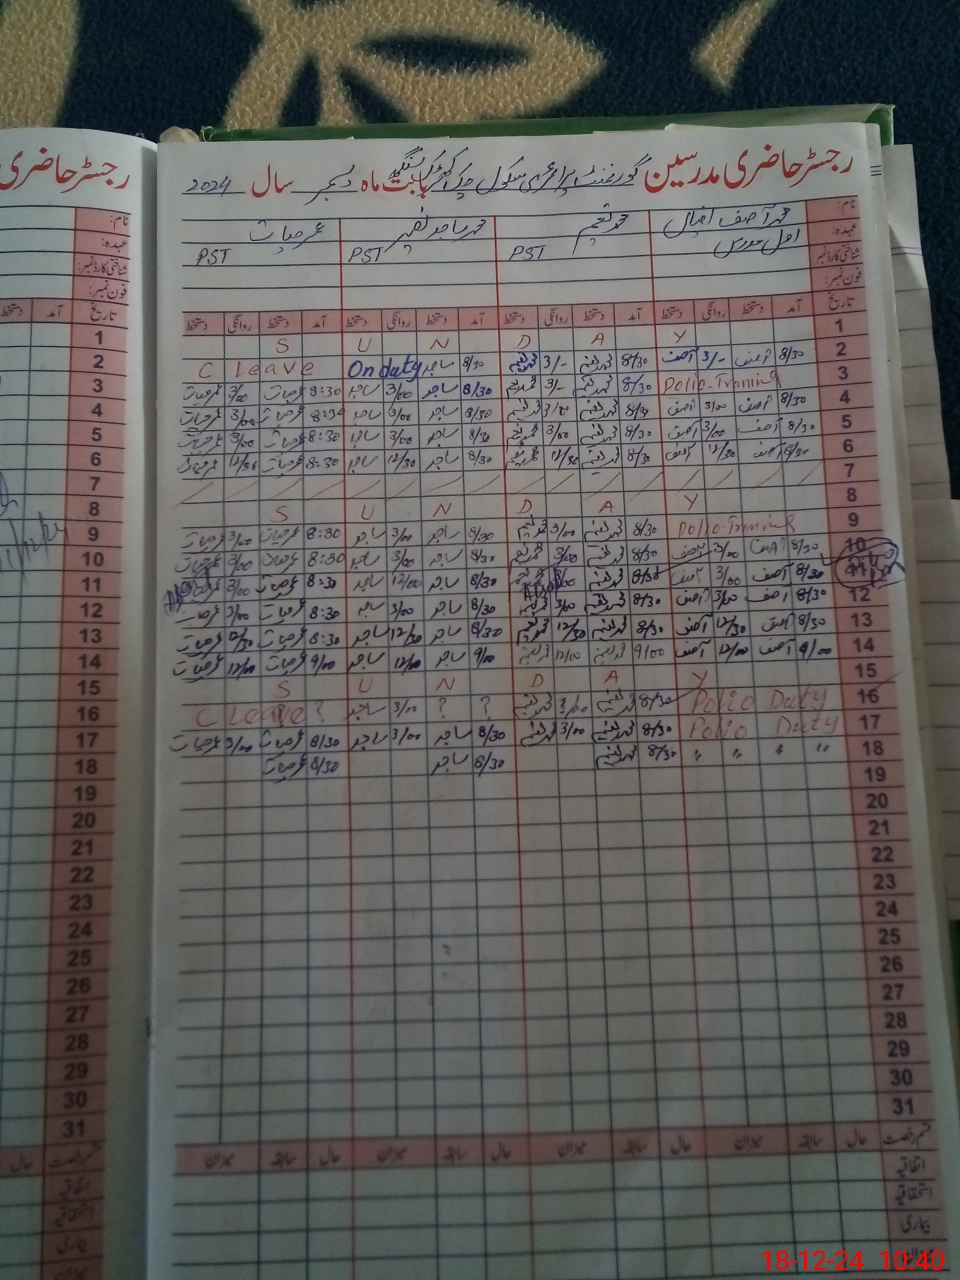 رجسٹر حاضری مدرسین گورنمنٹ پرائمری سکول بابت ماہ دسمبر سال 2024
رجسٹر حاضری
نام: محمد آصف اقبال محمد نعیم محمد ساجد نصیر عمر حیات
عہدہ: PST PST PST
شناختی کارڈ نمبر:
فون نمبر:
تاریخ آمد دستخط روانگی دستخط آمد دستخط روانگی دستخط آمد دستخط روانگی دستخط آمد دستخط روانگی دستخط
1 S U N D A Y
2 8/30 آصف 3/- آصف 8/30 محمد نعیم 3/- محمد نعیم 8/30 ساجد On duty C Leave
3 Polio-Training 8/30 محمد نعیم 3/- محمد نعیم 8/30 ساجد 3/00 ساجد 8:30 عمر حیات 3/00 عمر حیات
4 8/30 آصف 3/00 آصف 8/30 محمد نعیم 3/00 محمد نعیم 8/30 ساجد 3/00 ساجد 8:30 عمر حیات 3/00 عمر حیات
5 8/30 آصف 3/00 آصف 8/30 محمد نعیم 3/00 محمد نعیم 8/30 ساجد 3/00 ساجد 8:30 عمر حیات 3/00 عمر حیات
6 8/30 آصف 12/30 آصف 8/30 محمد نعیم 12/30 محمد نعیم 8/30 ساجد 12/30 ساجد 8:30 عمر حیات 12/30 عمر حیات
7
8 S U N D A Y
9 Polio-Training 8/30 محمد نعیم 3/00 محمد نعیم 8/30 ساجد 3/00 ساجد 8:30 عمر حیات 3/00 عمر حیات
10 8/30 آصف 3/00 آصف 8/30 محمد نعیم 3/00 محمد نعیم 8/30 ساجد 3/00 ساجد 8:30 عمر حیات 3/00 عمر حیات
11 8/30 آصف 3/00 آصف 8/30 محمد نعیم 8/30 ساجد 12/00 ساجد 8:30 عمر حیات 3/00
12 8/30 آصف 3/00 آصف 8/30 محمد نعیم 3/00 محمد نعیم 8/30 ساجد 3/00 ساجد 8:30 عمر حیات 3/00 عمر حیات
13 8/30 آصف 12/30 آصف 8/30 محمد نعیم 12/30 محمد نعیم 8/30 ساجد 12/30 ساجد 8:30 عمر حیات 12/30 عمر حیات
14 9/00 آصف 12/00 آصف 9/00 محمد نعیم 12/00 محمد نعیم 9/00 ساجد 12/00 ساجد 9/00 عمر حیات 12/00 عمر حیات
15 S U N D A Y
16 Polio Duty 8/30 محمد نعیم 3/00 محمد نعیم ? ? 3/00 ساجد C Leave ?
17 Polio Duty 8/30 محمد نعیم 3/00 محمد نعیم 8/30 ساجد 3/00 ساجد 8/30 عمر حیات 3/00 عمر حیات
18 " " " " 8/30 محمد نعیم 8/30 ساجد 8/30 عمر حیات
19
20
21
22
23
24
25
26
27
28
29
30
31
قسم رخصت حال سابقہ میزان حال سابقہ میزان حال سابقہ میزان حال سابقہ میزان
اتفاقیہ
استحقاقیہ
بیماری
18-12-24 10:40